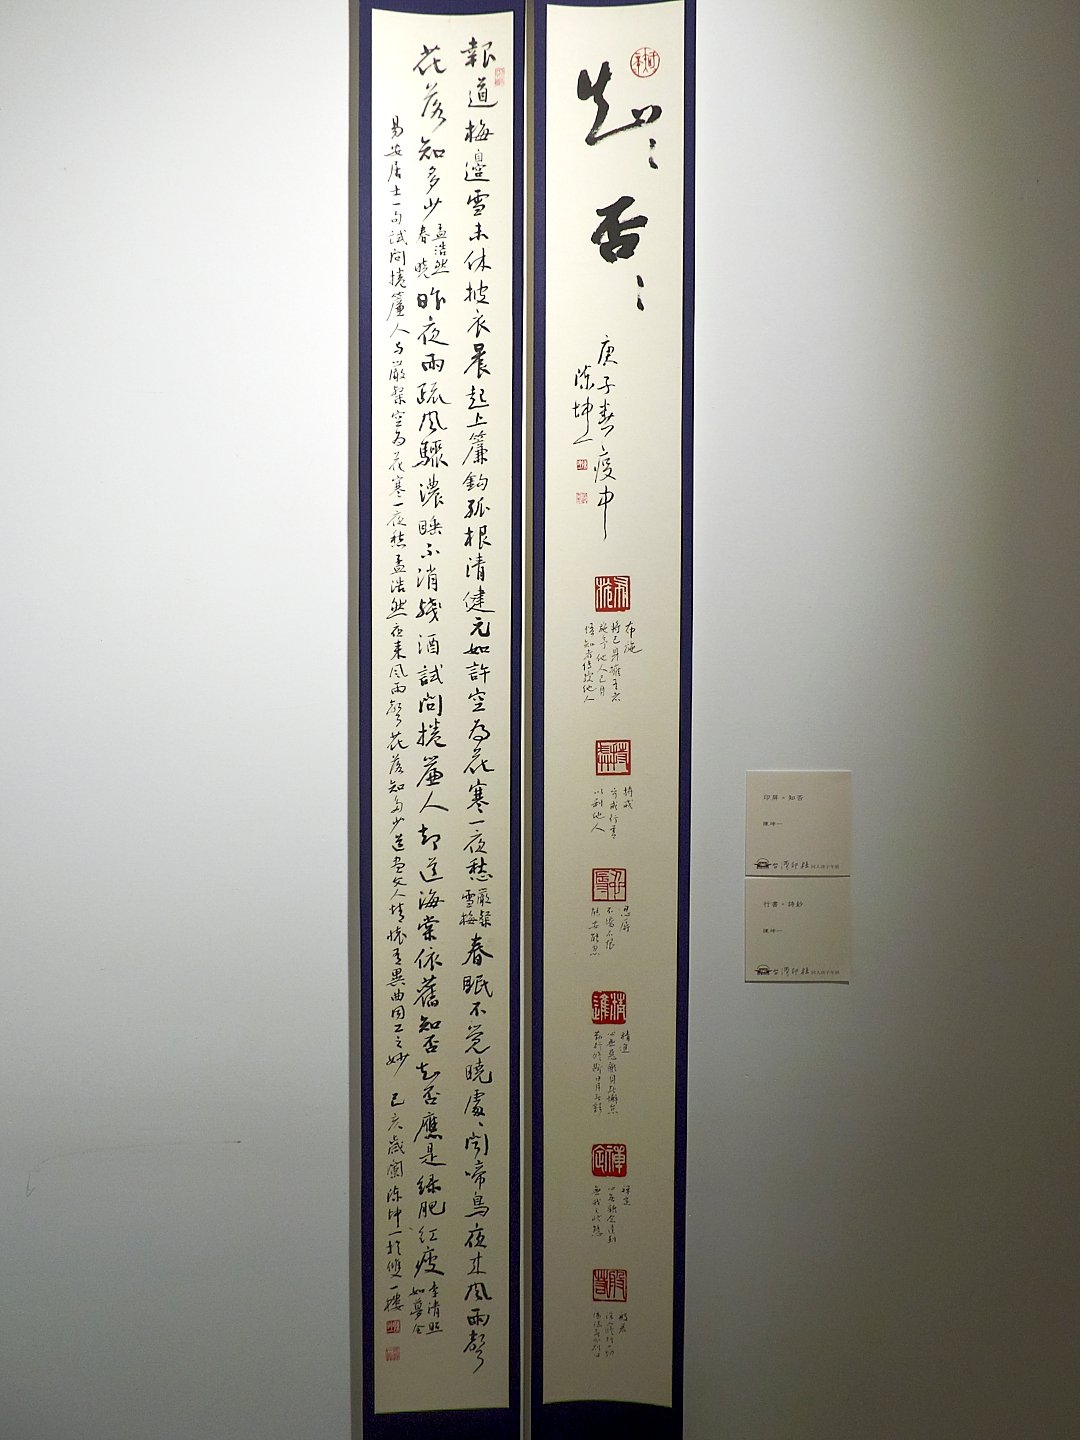 知知
否否
庚子春疫中
陳坤一
布施
持戒
守戒行善
以利他人
忍辱
精進
禪定
般若
報道梅邊雪未休披衣晨起上簾鈎孤根清健元如許空為花寒一夜愁
嚴粲
雪梅
春眠不覺曉處〻聞啼鳥夜來風雨聲
花落知多少
孟浩然
春曉
昨夜雨疏風驟濃睡不消殘酒試問捲簾人却道海棠依舊知否知否應是綠肥紅瘦
李清照
如夢令
易安居士一句試問捲簾人與嚴粲空為花寒一夜愁孟浩然夜來風雨聲花落知多少道盡文人情懷有異曲同工之妙 己亥歲闌陳坤一於雙一樓
印屏・知否
陳坤一
台灣印社 同人庚子年展
行書・詩鈔
陳坤一
台灣印社 同人庚子年展